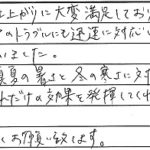 上がりに大変満足してお
のトラブルにも迅速に対応い
ました。
夏の暑さと冬の寒さに対
だけの効果を発揮してくれ
くお願い致します。